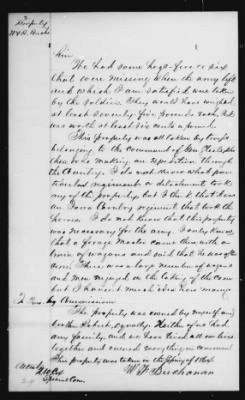 To
Property
Sir
We had some hogs - five or six
that were missing when the army left
and which I am satisfied were taken
by the soldiers. They would have weighed
at least seventy-five pounds each, but
was worth at least six cents a pound.
This property was all taken by troops
belonging to the command of Gen
who was making an expedition through
the Country. I do not know what par-
ticular regiment or detachment took
any of the property, but I think that
an Iowa Cavalry regiment that took the
horses. I do not know that this property
was necessary for the army. I only know
that a forage Master came there with a
train of wagons and said that he was
There was a large number of wagons
and men engaged in the taking of the corn
but I haven't much idea how many
by Commissioners
The property was owned by myself and
brother Robert, equally. Neither of us had
any family, and we have lived all our lives
together and owned everything in common
This property was taken in the Spring of 1864
W. H. Buchanan